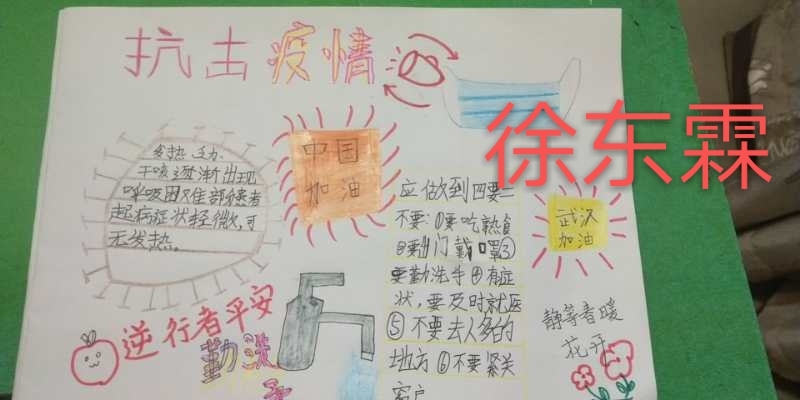 抗击疫情
徐东霖
发热乏力
干咳逐渐出现
呼吸困难部分患者
起病症状轻微,可
无发热。
中国
加油
应做到四要二
不要:①要吃熟食
②要出门戴口罩③
要勤洗手④有症
状,要及时就医
⑤不要去人多的
地方⑥不要紧关
窗户
武汉
加油
静等春暖
花开
逆行者平安
勤洗
手